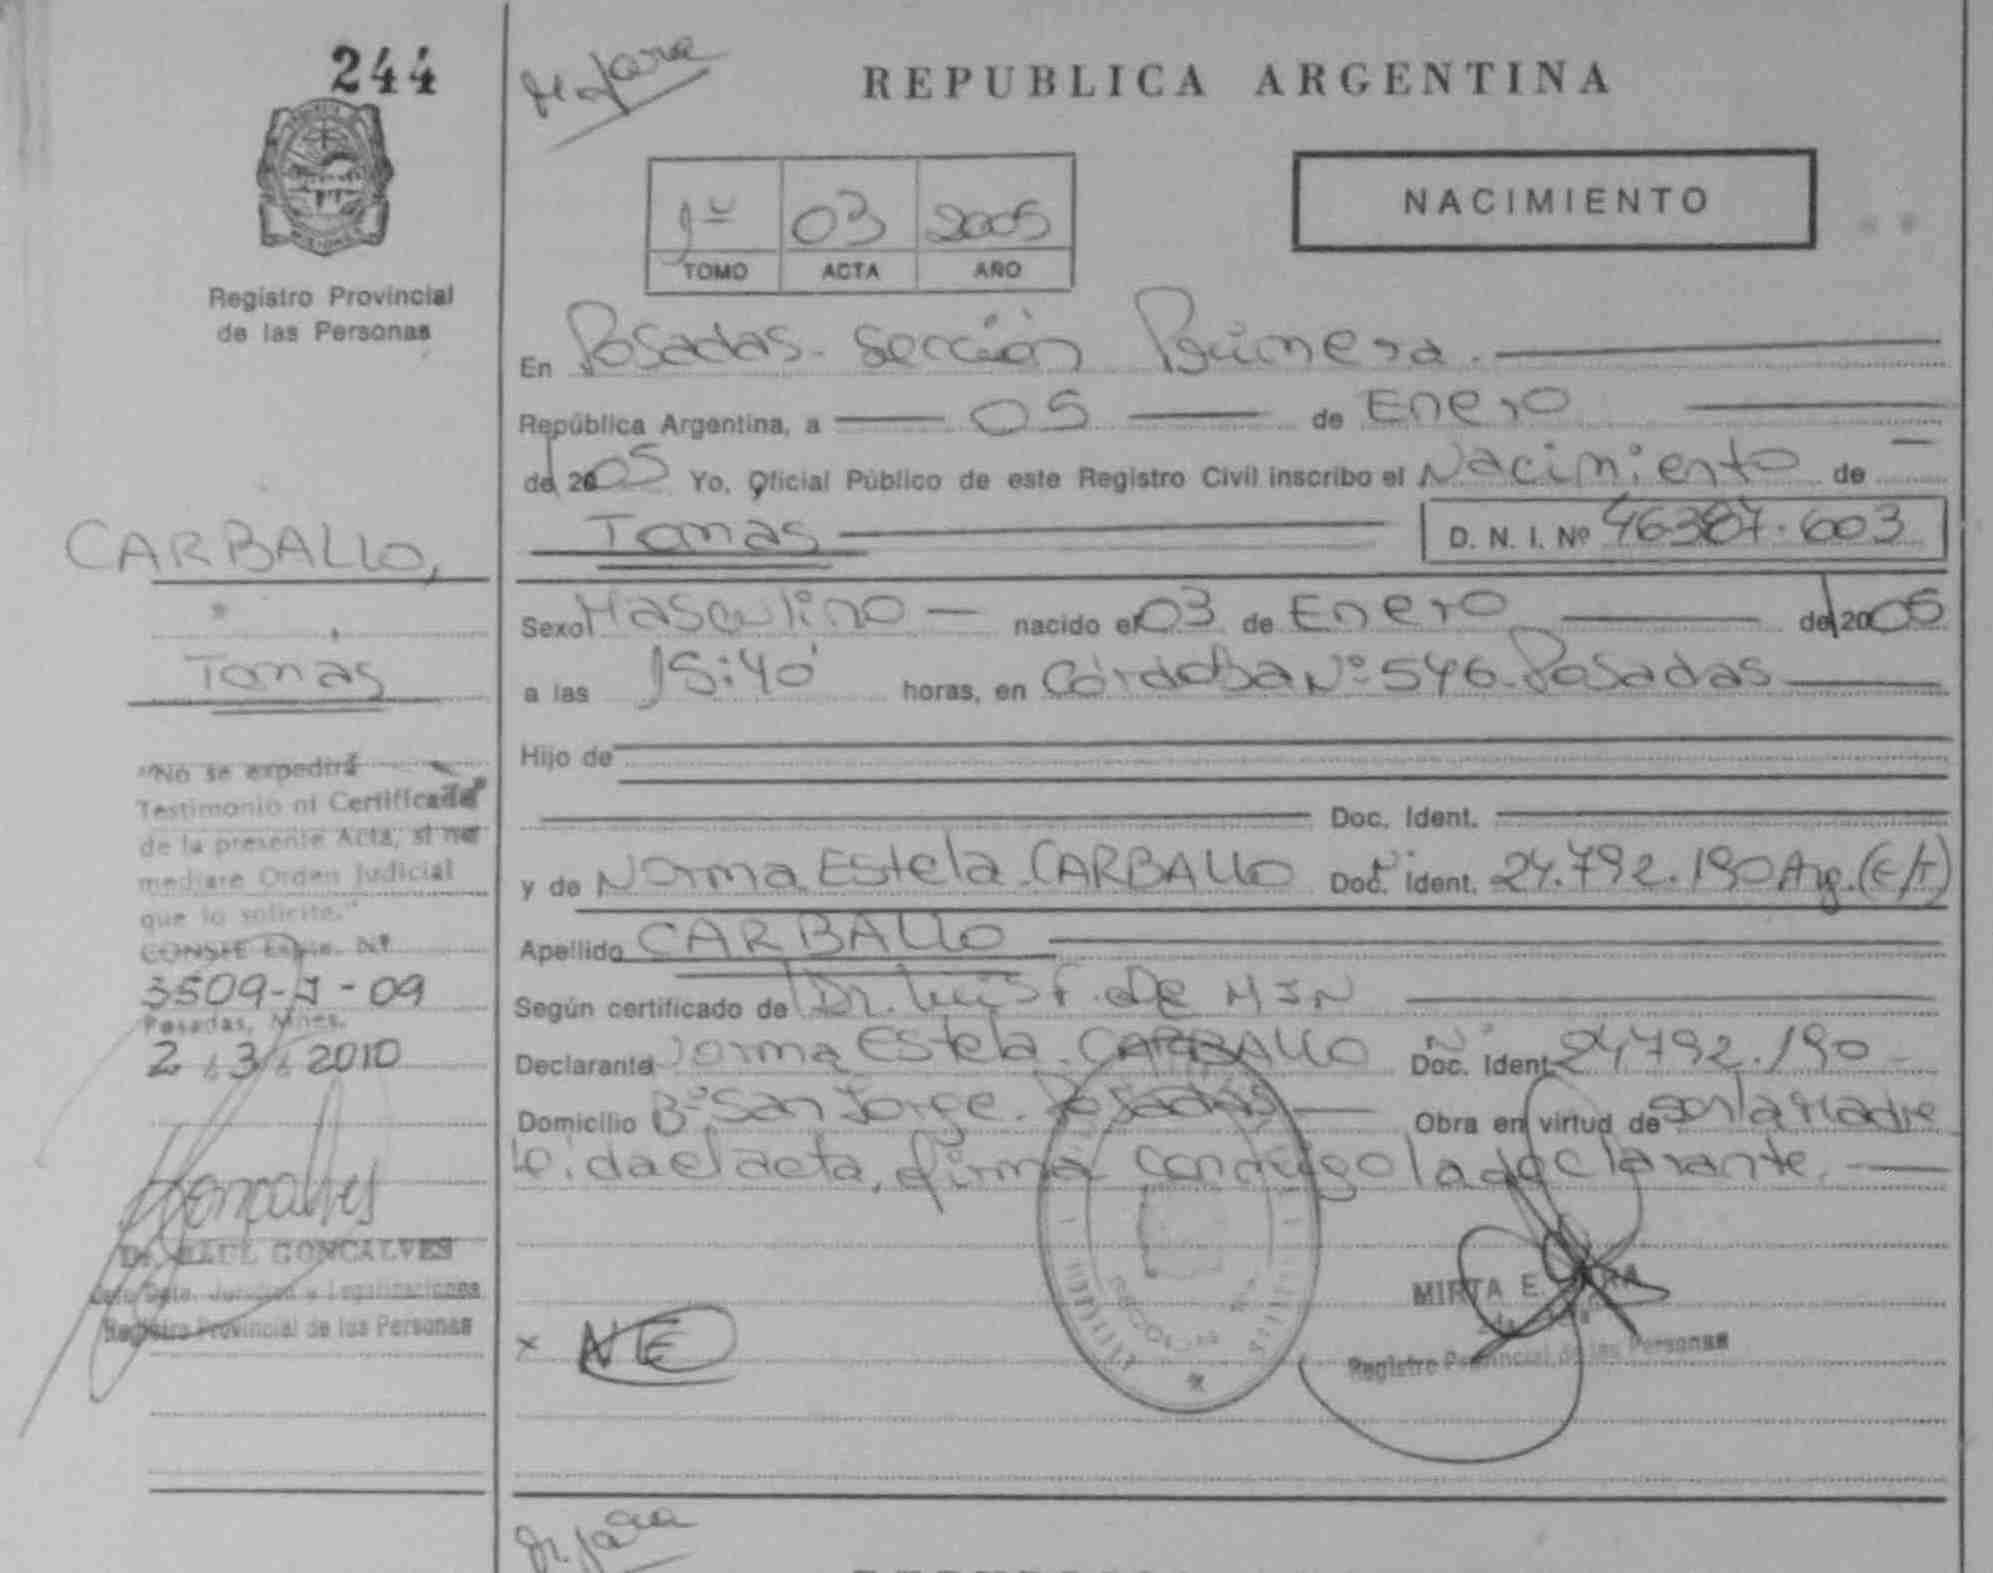 244
Registro Provincial
de las Personas
CARBALLO,
Tomás
"No se expedirá
Testimonio ni Certificado
de la presente Acta, si no
mediare Orden Judicial
que lo solicite."
CONSTE Expte. Nº
3509-J-09
Posadas, Mnes.
2 3 2010
Dr. RAUL GONCALVES
Jefe Dpto. Jurídico y Legalizaciones
Registro Provincial de las Personas
M Jara
REPUBLICA ARGENTINA
NACIMIENTO
1º 03 2005
TOMO ACTA AÑO
En Posadas - Sección Primera.
República Argentina, a 05 de Enero
del 2005 Yo, Oficial Público de este Registro Civil inscribo el Nacimiento de
Tomás D. N. I. Nº 46387.603
Sexo Masculino nacido el 03 de Enero del 2005
a las 15:40 horas, en Córdoba Nº 546 - Posadas
Hijo de
Doc. Ident.
y de Norma Estela CARBALLO Doc. Ident. 24.792.190 Arg. (E/T)
Apellido CARBALLO
Según certificado de Dr. Luis F. De
Declarante Norma Estela CARBALLO Nº Doc. Ident. 24792.190
Domicilio Bº San Jorge. Posadas Obra en virtud de ser la Madre
Leída el acta, firma conmigo la declarante.
MIRTA E. JARA
Registro Provincial de las Personas
x NE
M. Jara